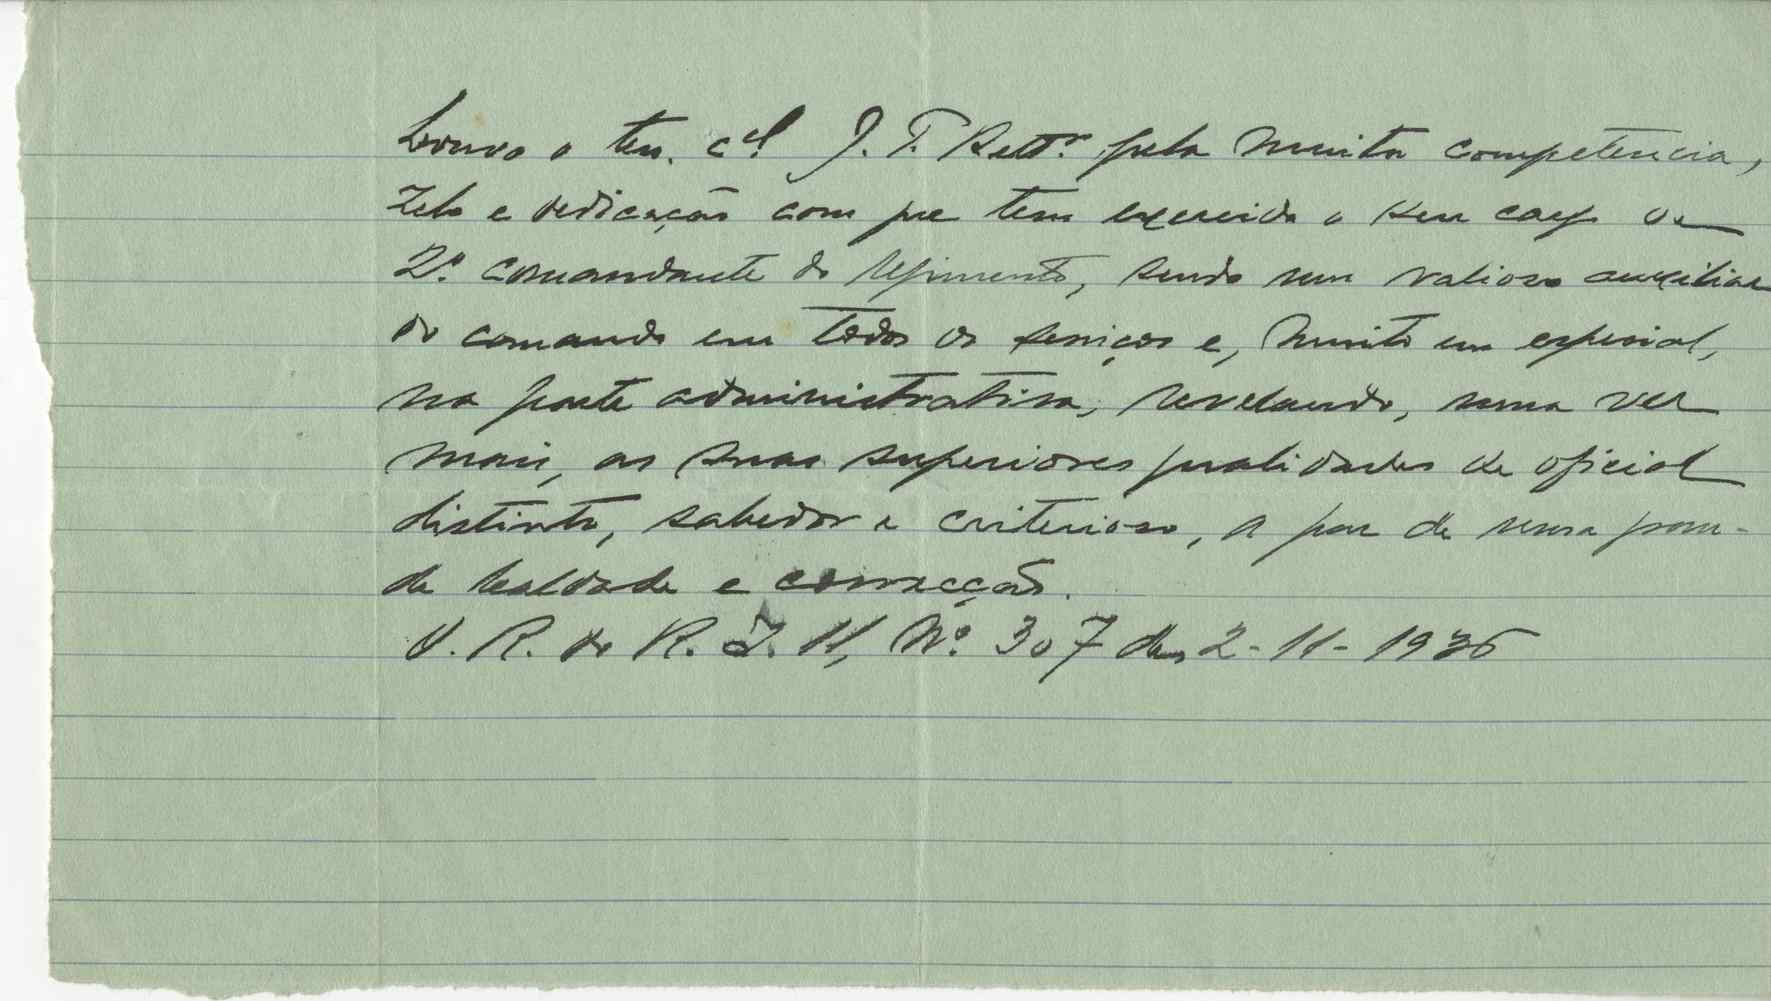 Louvo o ten. cel J. T. Bettr. pela muita competencia,
zelo e dedicação com que tem exercido o seu cargo de
2º. comandante do regimento, sendo um valioso auxiliar
do comando em todos os serviços e, muito em especial,
na parte administrativa, revelando, uma vez
mais, as suas superiores qualidades de oficial
distinto, sabedor e criterioso, a par de uma gran-
de lealdade e correcção.
O. R. do R. I. 11, Nº. 307 de 2-11-1936